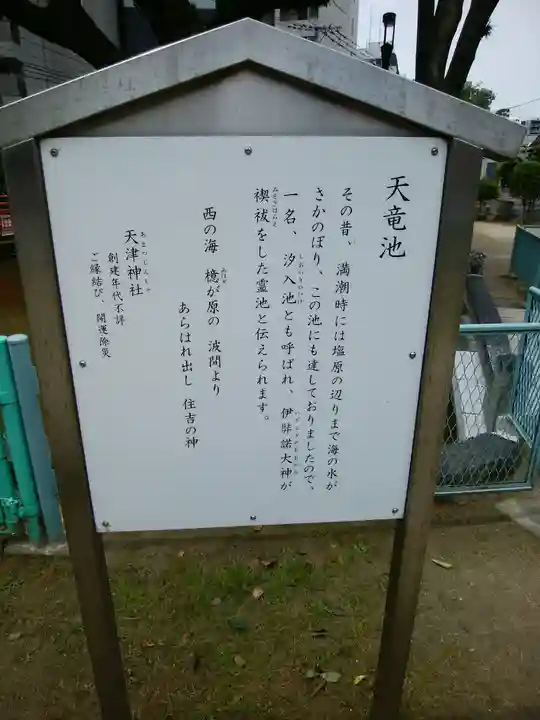 天竜池
その昔、満潮時には塩原の辺りまで海の水が
さかのぼり、この池にも達しておりましたので、
一名、汐入池とも呼ばれ、伊弉諾大神が
禊祓をした霊池と伝えられます。
西の海 檍が原の 波間より
あらはれ出し 住吉の神
天津神社
創建年代不詳
ご縁結び、開運除災